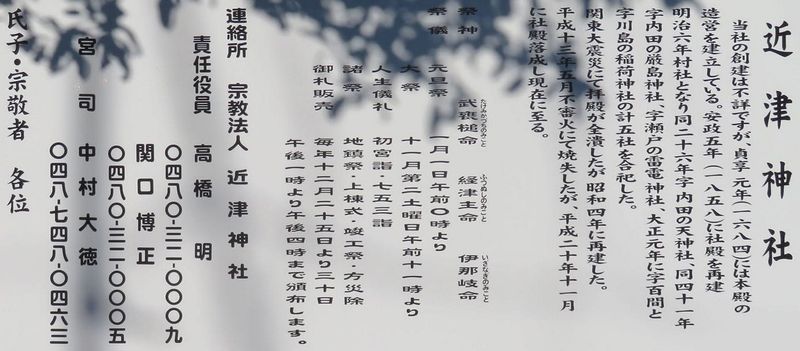 近津神社
当社の創建は不詳ですが、貞享元年(一六八四)には本殿の
造営を建立している。安政五年(一八五八)に社殿を再建
明治六年村社となり同二十六年字内田の天神社、同四十一年
字内田の厳島神社、字瀬戸の雷電神社、大正元年に字百間と
字川島の稲荷神社の計五社を合祀した。
関東大震災にて拝殿が全潰したが昭和四年に再建した。
平成十三年五月不審火にて焼失したが、平成二十年十一月
に社殿落成し現在に至る。
祭神 武甕槌命 経津主命 伊那岐命
たけみかづちのみこと ふつぬしのみこと いさなぎのみこと
祭儀 元旦祭 一月一日午前〇時より
大祭 十一月第二土曜日午前十一時より
人生儀礼 初宮詣・七五三詣
諸祭 地鎮祭・上棟式・竣工祭・方災除
御札販売 毎年十二月二十五日より三十日
午後一時より午後四時まで頒布します。
連絡所 宗教法人 近津神社
責任役員 高橋 明
〇四八〇-三二-〇〇〇九
関口博正
〇四八〇-三二-〇〇〇五
宮司 中村大徳
〇四八-七四八-〇四六三
氏子・宗敬者 各位